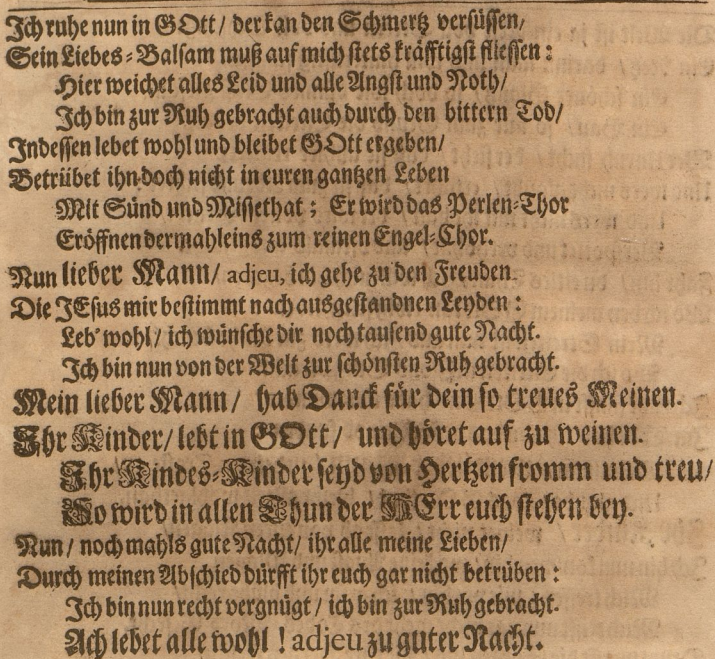 Ich ruhe nun in GOtt/ der kan den Schmertz versüssen/
Sein Liebes-Balsam muß auf mich stets kräfftigst fliessen:
Hier weichet alles Leid und alle Angst und Noth/
Ich bin zur Ruh gebracht auch durch den bittern Tod/
Indessen lebet wohl und bleibet GOtt ergeben/
Betrübet ihn doch nicht in euren gantzen Leben
Mit Sünd und Missethat; Er wird das Perlen-Thor
Eröffnen dermahleins zum reinen Engel-Chor.
Nun lieber Mann/ adjeu, ich gehe zu den Freuden.
Die JEsus mir bestimmt nach ausgestandnen Leyden:
Leb' wohl/ ich wünsche dir noch tausend gute Nacht.
Ich bin nun von der Welt zur schönsten Ruh gebracht.
Mein lieber Mann/ hab Danck für dein so treues Meinen.
Ihr Kinder/ lebt in GOtt/ und höret auf zu weinen.
Ihr Kindes-Kinder seyd von Hertzen fromm und treu/
So wird in allen Thun der HErr euch stehen bey.
Nun/ nochmahls gute Nacht/ ihr alle meine Lieben/
Durch meinen Abschied dürfft ihr euch gar nicht betrüben:
Ich bin nun recht vergnügt/ ich bin zur Ruh gebracht.
Ach lebet alle wohl! adjeu zu guter Nacht.